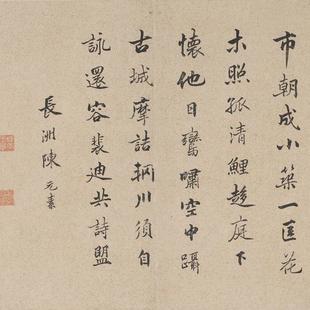 市朝成小築一匡花
木照孤清鯉趍庭下
懷他日鸞嘯空中躡
古城摩詰輞川須自
詠還容裴迪共詩盟
長洲陳元素